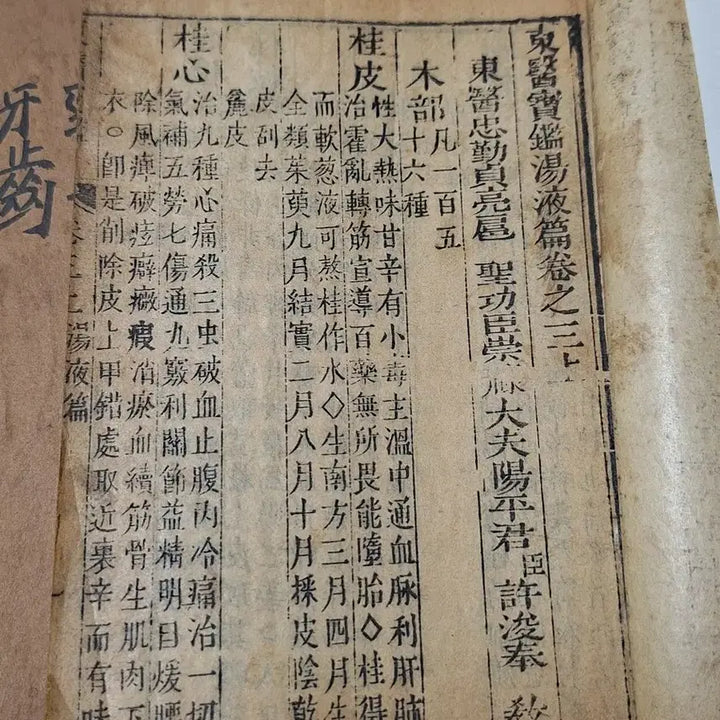 東醫寶鑑湯液篇卷之三
東醫忠勤貞亮扈 聖功臣崇祿大夫陽平君臣許浚奉 敎
木部凡一百五
十六種
桂皮性大熱味甘辛有小毒主溫中通血脉利肝肺
治霍亂轉筋宣導百藥無所畏能墮胎◇桂得
而軟葱液可熬桂作水◇生南方三月四月生
全類茱萸九月結實二月八月十月採皮陰乾
皮刮去
麄皮
桂心治九種心痛殺三虫破血止腹內冷痛治一切
氣補五勞七傷通九竅利關節益精明目煖腰
除風痺破痃癖癥瘕消瘀血續筋骨生肌肉下
衣○卽是削除皮上甲錯處取近裏辛而有味
卷三 湯液篇
牙齒